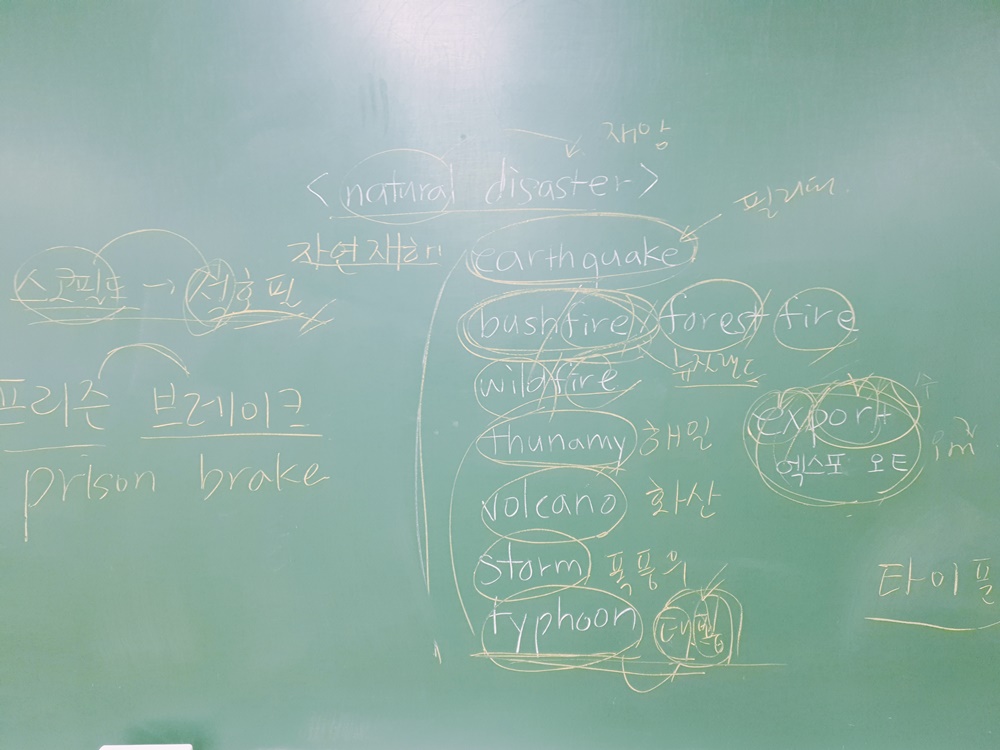 재앙
< natural disaster >
자연재해 earthquake 필리핀
스코필드 → 석호필
bushfire forest fire
wildfire 뉴질랜드
프리즌 브레이크
prison brake
export 수
엑스포 오트 im
thunamy 해일
volcano 화산
storm 폭풍우
typhoon 태풍
타이푼